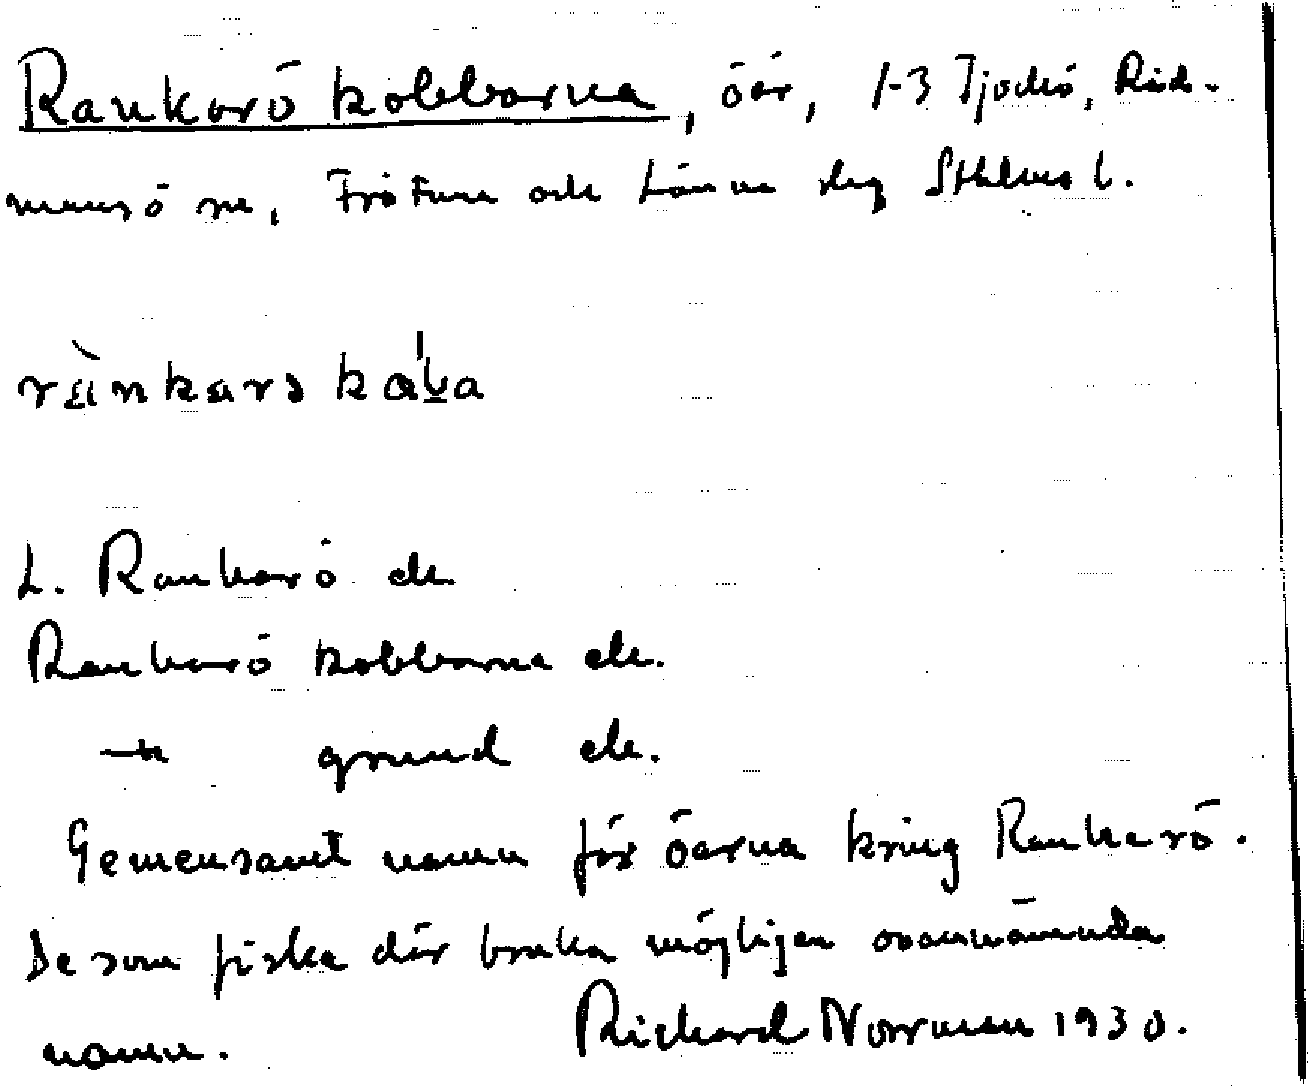 Rankarö kobbarna, öar, 1-3 Tjockö, Räd-
mansö sn, Frötuna och Länna slg Sthlms l.
rànkarə kάba
L. Rankarö ek.
Rankarö kobbarna ek.
—"— grund ek.
Gemensamt namn för öarna kring Rankarö.
De som fiska där bruka möjligen ovannämnda
namn. Richard Norrman 1930.